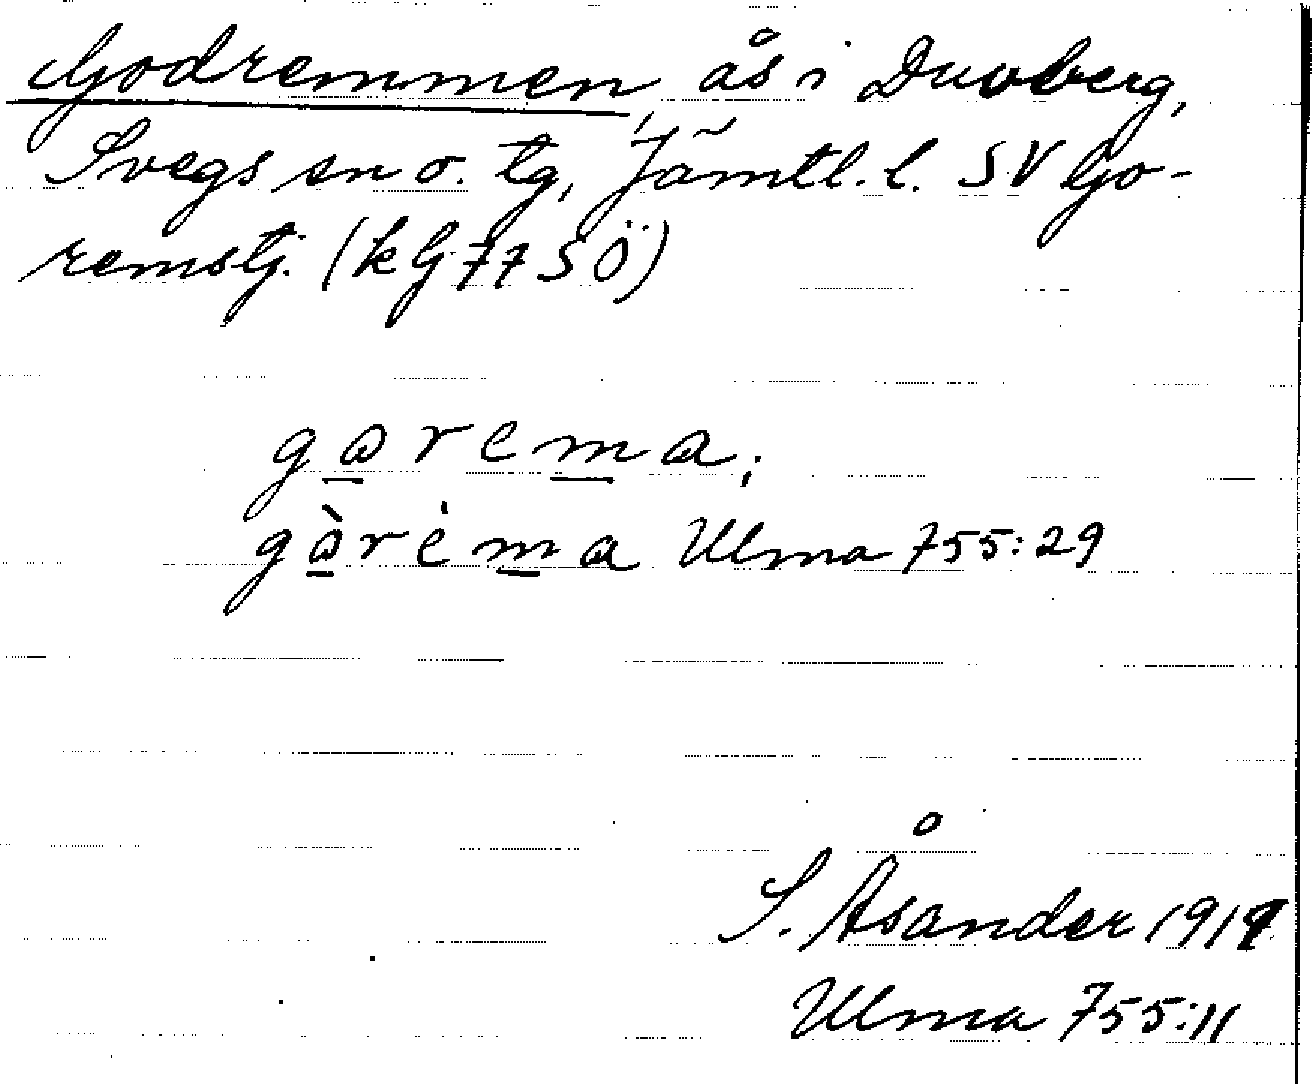 Godremmen, ås i Duvberg,
Svegs sn o. tg, Jämtl. l. SV Go-
remstj. (kG 77 SÖ)
gərema;
gə̀rèma Ulma 755:29
S. Åsander 1919
Ulma 755:11